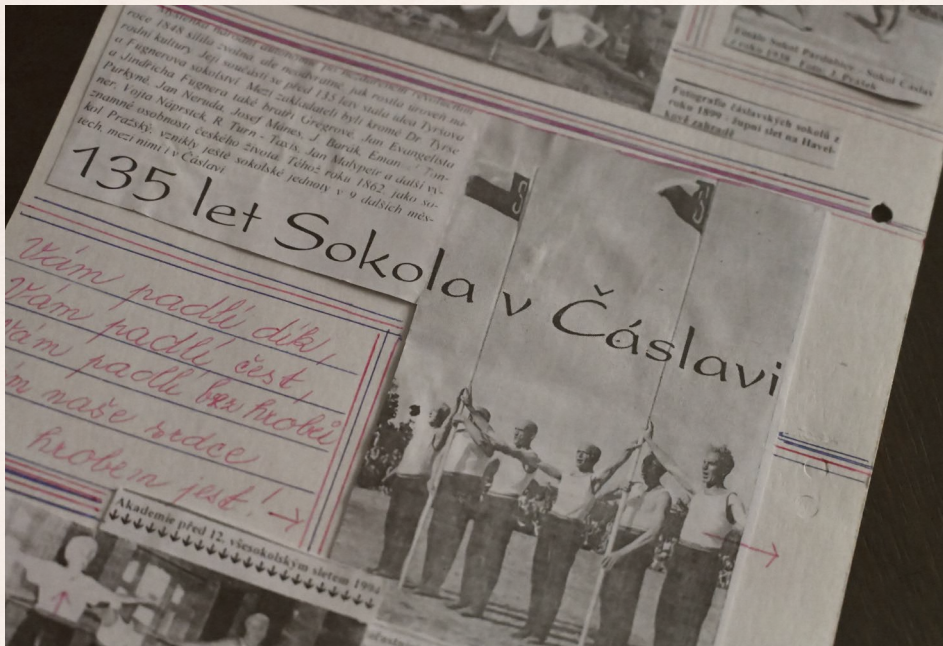 Myšlenka národní
roce 1848 sílila zvolna, ale neodvratně, jak rostla úroveň ná-
rodní kultury. Její součástí se před 135 lety stala idea Tyršova
a Fugnerova sokolství. Mezi zakladateli byli kromě Dr. Tyrše
a Jindřicha Fugnera také bratři Grégrové, Jan Evangelista
Purkyně, Jan Neruda, Josef Mánes, J. Barák, Eman. Ton-
ner, Vojta Náprstek, R. Turn - Taxis, Jan Malypetr a další vý-
znamné osobnosti českého života. Téhož roku 1862, jako So-
kol Pražský, vznikly ještě sokolské jednoty v 9 dalších měs-
tech, mezi nimi i v Čáslavi.
135 let Sokola v Čáslavi
Finále Sokol Pardubice - Sokol Čáslav
z roku 1938. Foto: J. Pražák
Fotografie čáslavských sokolů z
roku 1890 - župní slet na Havel-
kově zahradě
S
S
Vám padlí dík,
Vám padlí čest,
Vám padlí bez hrobů
naše srdce
hrobem jest!
Akademie před 12. všesokolským sletem 1994